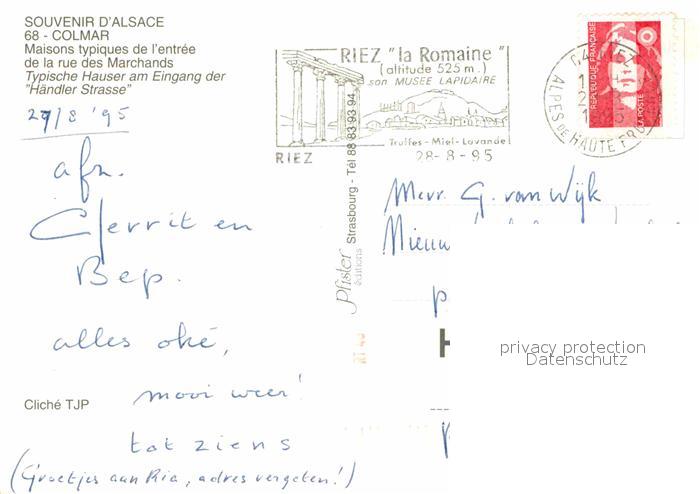 SOUVENIR D'ALSACE
68 - COLMAR
Maisons typiques de l'entrée
de la rue des Marchands
Typische Hauser am Eingang der
"Händler Strasse"
27/8 '95
afz.
Gerrit en
Bep.
alles oké,
mooi weer!
tot ziens
(Groetjes aan Ria, adres vergeten!)
Cliché TJP
RIEZ "la Romaine"
(altitude 525 m.)
son MUSEE LAPIDAIRE
Truffes - Miel - Lavande
RIEZ
28-8-95
Pfister éditions Strasbourg - Tél 88 83 93 94
REPUBLIQUE FRANÇAISE
LA POSTE
ALPES DE HAUTE
Mevr. G. van Wijk
Nieuw
privacy protection
Datenschutz